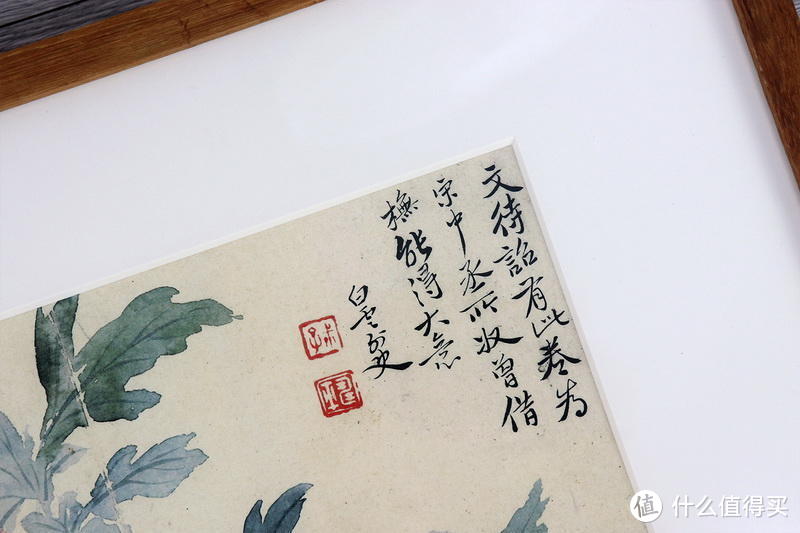 文待詔有此卷為
宋中丞所收曾借
橅能得大意
白雲外史
值 什么值得买